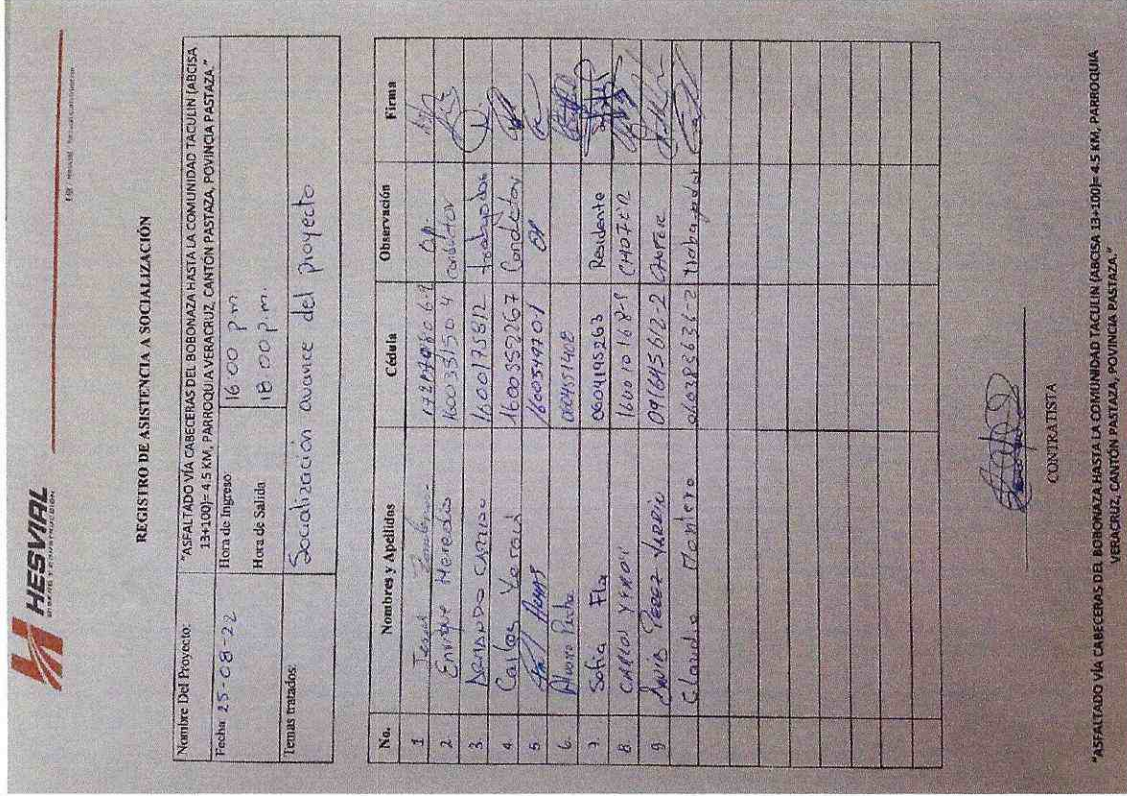 HESVIAL
DISEÑO Y CONSTRUCCIÓN
REGISTRO DE ASISTENCIA A SOCIALIZACIÓN
Nombre Del Proyecto: "ASFALTADO VÍA CABECERAS DEL BOBONAZA HASTA LA COMUNIDAD TACULIN (ABCISA
13+100)= 4.5 KM, PARROQUIA VERACRUZ, CANTÓN PASTAZA, POVINCIA PASTAZA."
Fecha 25-08-22 Hora de Ingreso 16:00 p.m
Hora de Salida 18:00 p.m.
Temas tratados: Socialización avance del proyecto
No. Nombres y Apellidos Cédula Observación Firma
1 OP.
2 Enrique Heredia 1600331504 conductor
3 ARMANDO 1600175812 trabajador
4 Carlos 1600352267 Conductor
5 1600549701 OP
6 Alvaro 0604551408
7 Sofia Fla 0604195263 Residente
8 CARLOS 160010168-8 CHOFER
9 PEREZ 091645612-2 CHOFER
Claudio Montero 060285636-2 trabajador
CONTRATISTA
"ASFALTADO VÍA CABECERAS DEL BOBONAZA HASTA LA COMUNIDAD TACULIN (ABCISA 13+100)= 4.5 KM, PARROQUIA
VERACRUZ, CANTÓN PASTAZA, POVINCIA PASTAZA."